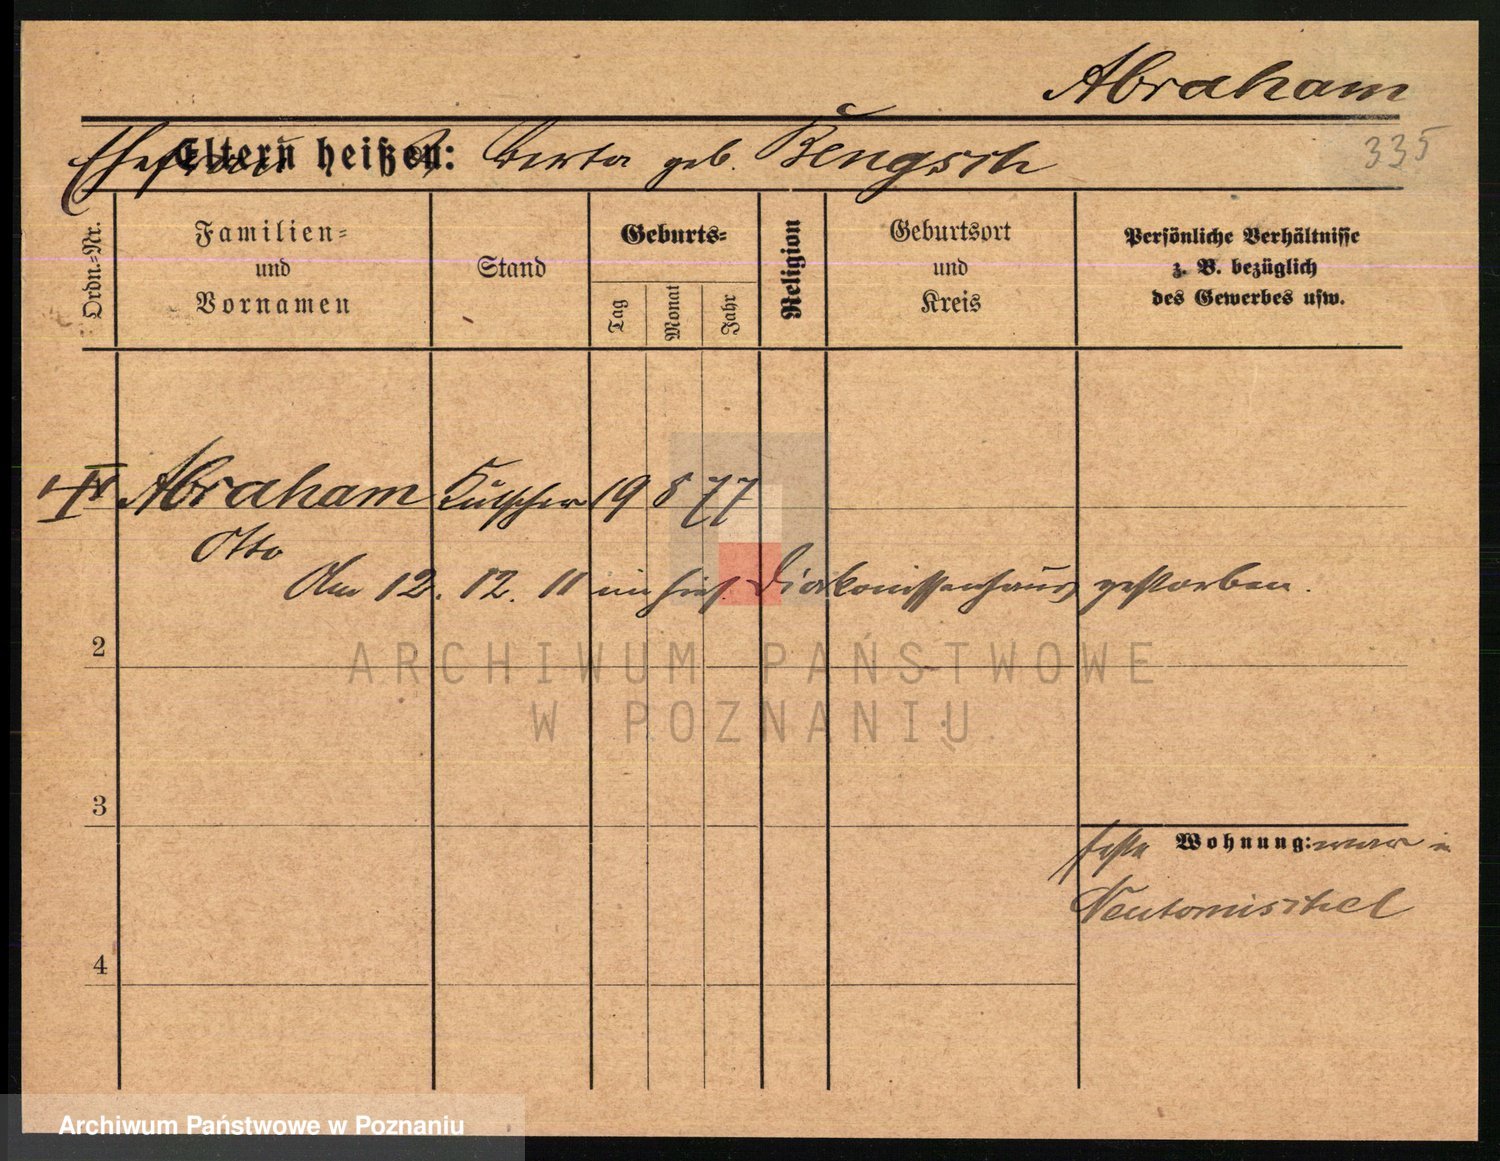 Abraham
335
Eltern heißen:
Ehefrau Berta geb. Bengsch
Ordn.-Nr.
Familien- und Vornamen
Stand
Geburts-
Tag
Monat
Jahr
Religion
Geburtsort und Kreis
Persönliche Verhältnisse
z. B. bezüglich
des Gewerbes usw.
Abraham Kutscher 19 8 77
Otto
Am 12. 12. 11 im hies. Diakonissenhaus gestorben.
2
ARCHIWUM PAŃSTWOWE
W POZNANIU
3
feste Wohnung: war in
Neutomischel
4
Archiwum Państwowe w Poznaniu